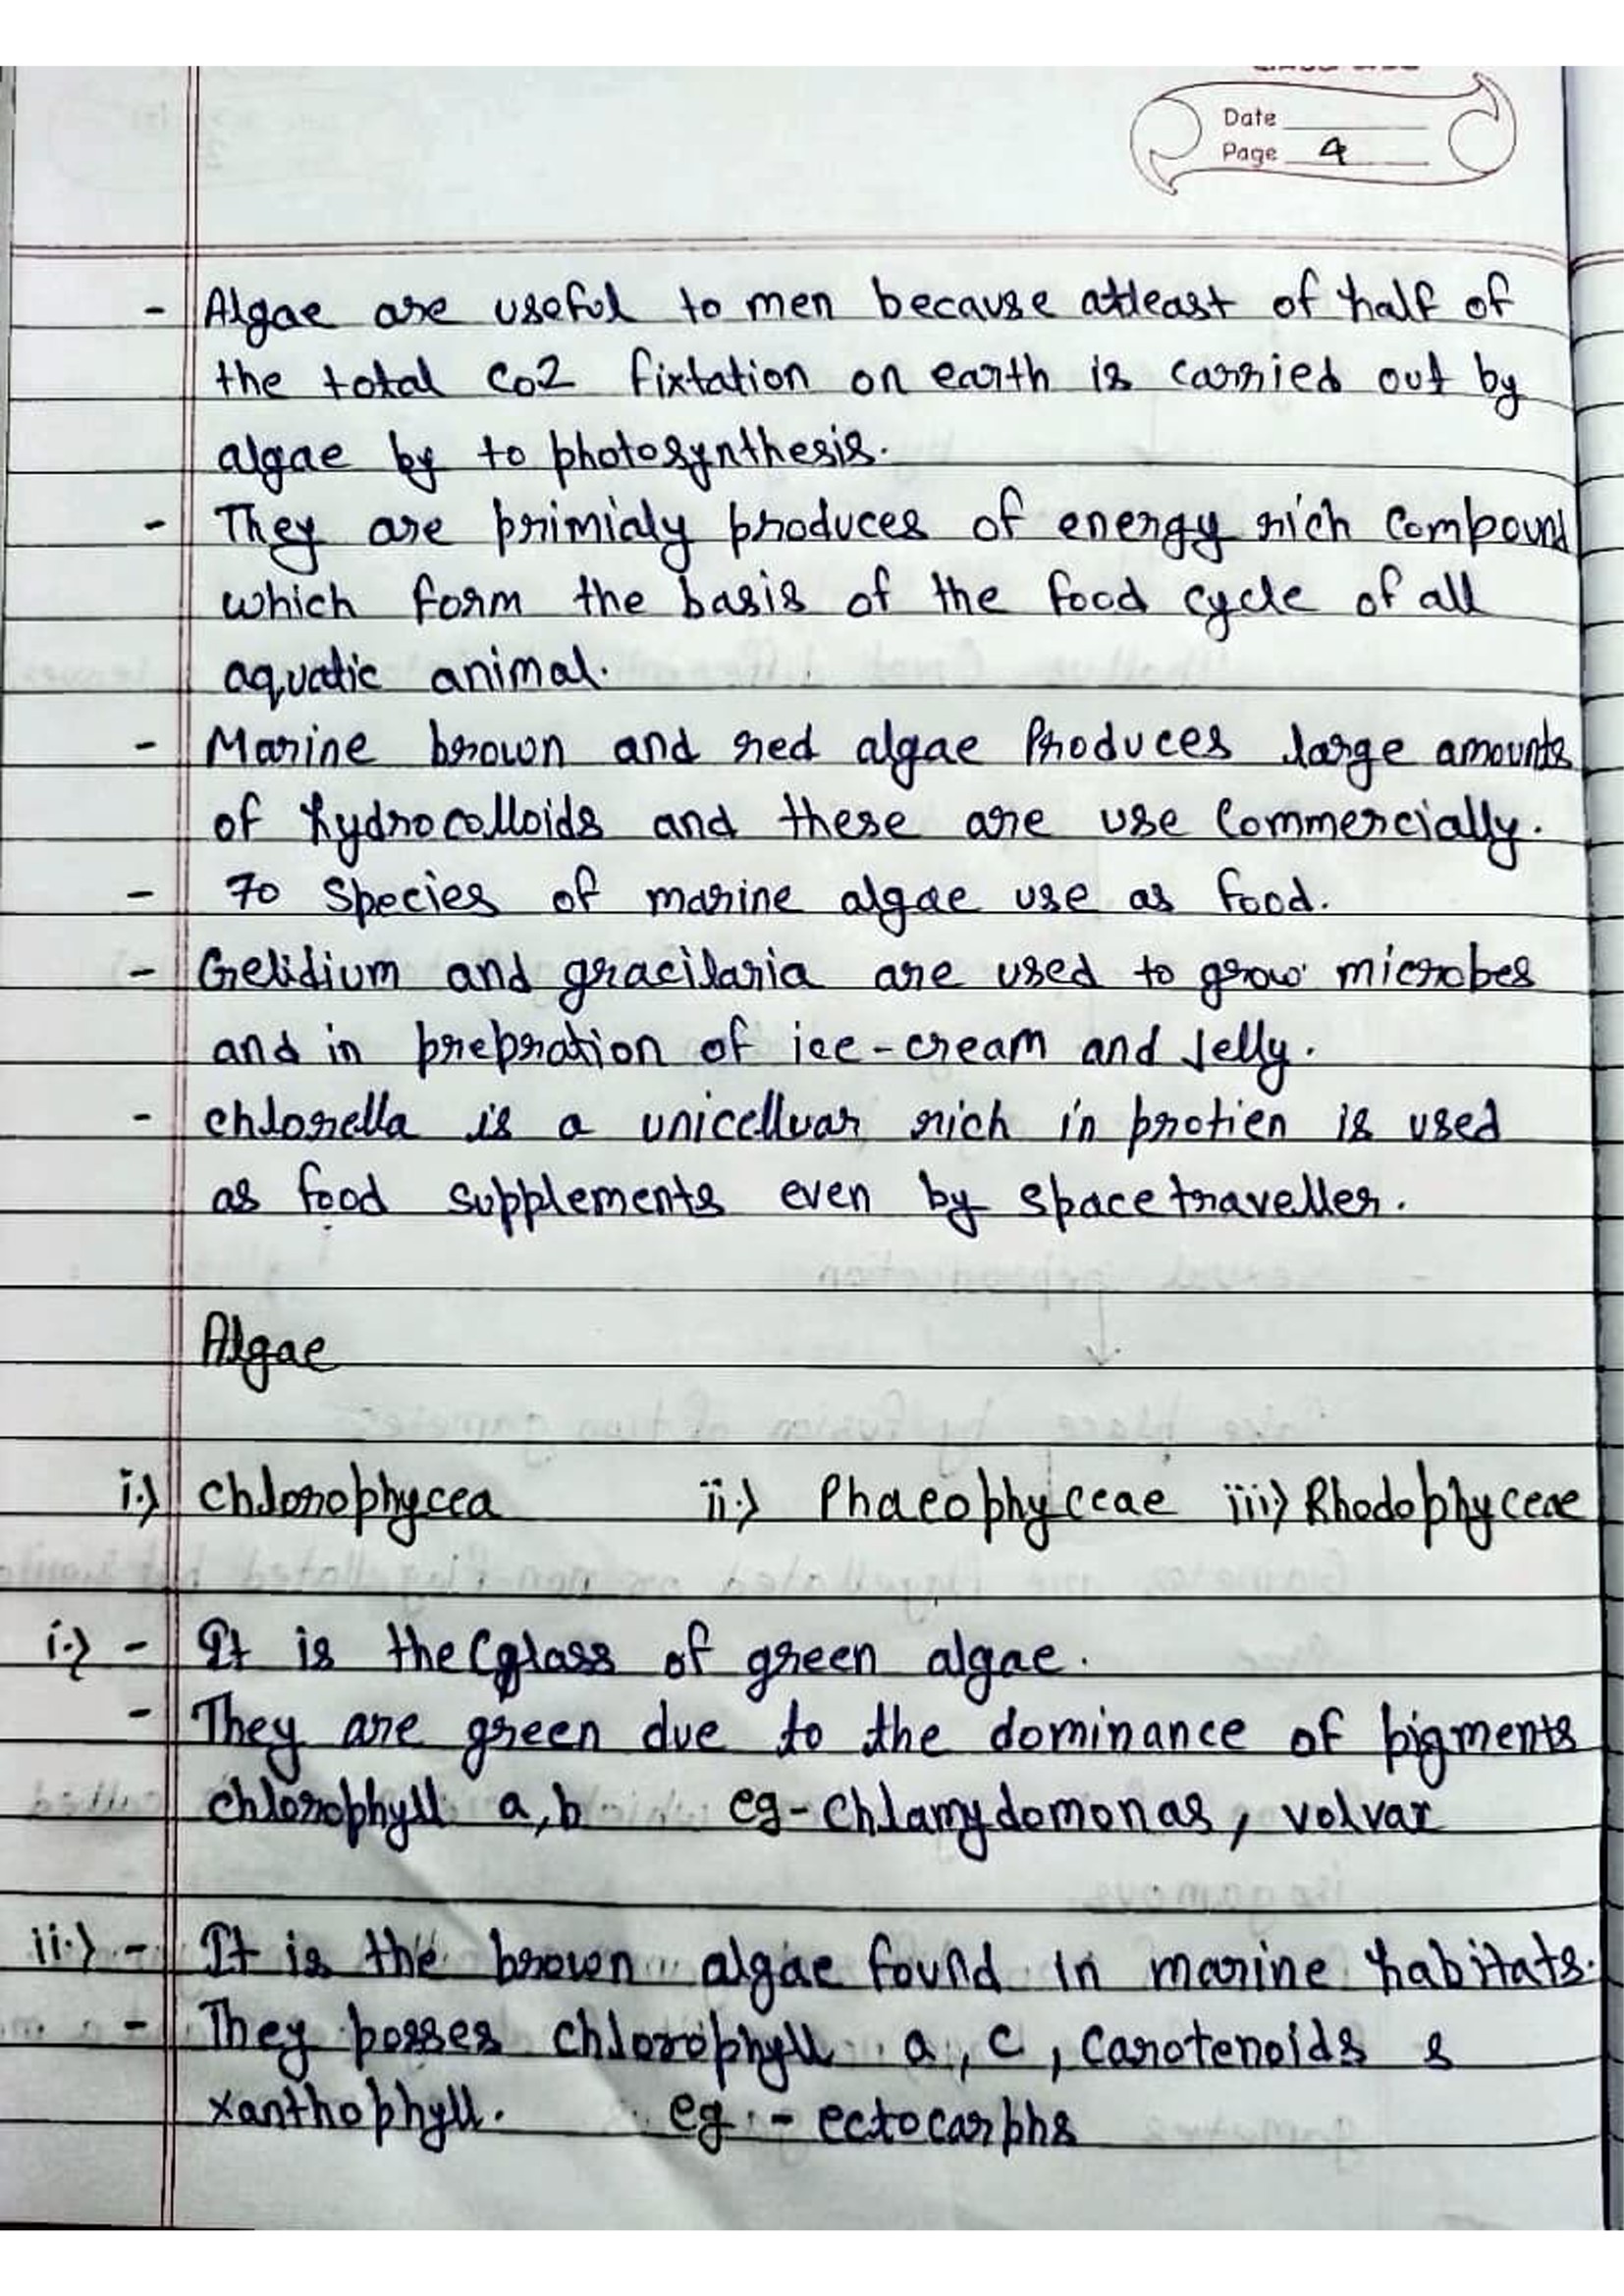 Date
Page 4
- Algae are useful to men because atleast of half of
the total Co2 fixtation on earth is carried out by
algae by to photosynthesis.
- They are primialy produces of energy rich Compound
which form the basis of the food cycle of all
aquatic animal.
- Marine brown and red algae Produces large amounts
of hydrocolloids and these are use Commercially.
- 70 Species of marine algae use as food.
- Gelidium and gracilaria are used to grow microbes
and in prepration of ice-cream and Jelly.
- chlorella is a unicelluar rich in protien is used
as food supplements even by spacetraveller.
Algae
i.) Chlorophycea ii.) Phaeophyceae iii) Rhodophyceae
i.) - It is the class of green algae.
- They are green due to the dominance of pigments
chlorophyll a,b eg - Chlamydomonas, volvax
ii.) - It is the brown algae found in marine habitats.
- They posses chlorophyll a, c, carotenoids &
xanthophyll. eg - ectocarphs